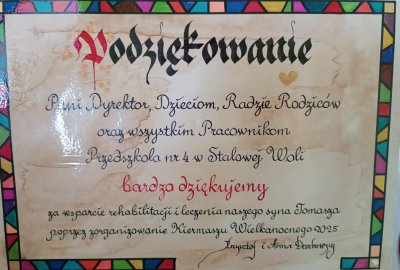 Podziękowanie
Pani Dyrektor, Dzieciom, Radzie Rodziców
oraz wszystkim Pracownikom
Przedszkola nr 4 w Stalowej Woli
bardzo dziękujemy
za wsparcie rehabilitacji i leczenia naszego syna Tomasza
poprzez zorganizowanie Kiermaszu Wielkanocnego 2025
Krzysztof i Anna